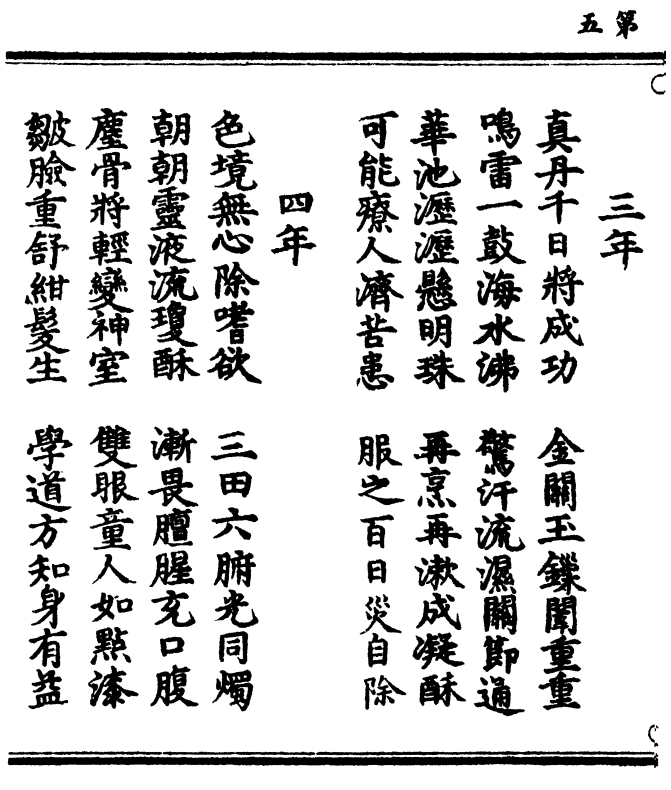 第五
三年
真丹千日將成功　金關玉鏁闈重重
鳴雷一鼓海水沸　驚汗流濕關節通
華池瀝瀝懸明珠　再烹再漱成凝酥
可能療人濟苦患　服之百日災自除
四年
色境無心除嗜欲　三田六腑光同燭
朝朝靈液流瓊酥　漸畏膻腥充口腹
塵骨將輕變神室　雙眼童人如點漆
皺臉重舒紺髮生　學道方知身有益